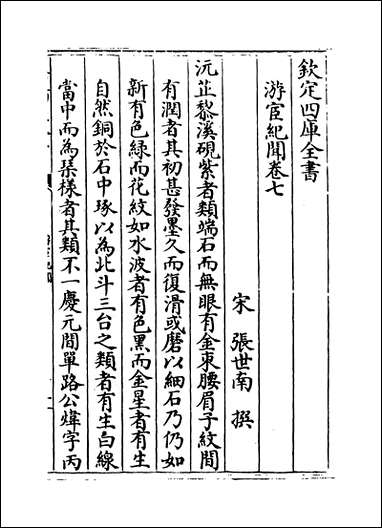 欽定四庫全書
游宦紀聞卷七
宋 張世南 撰
沅芷黎溪硯紫者類端石而無眼有金束腰眉子紋間
有潤者其初甚發墨久而復滑或磨以細石乃仍如
新有色綠而花紋如水波者有色黑而金星者有生
自然銅於石中琢以為北斗三台之類者有生白線
當中而為琹様者其類不一慶元間單路公煒字丙